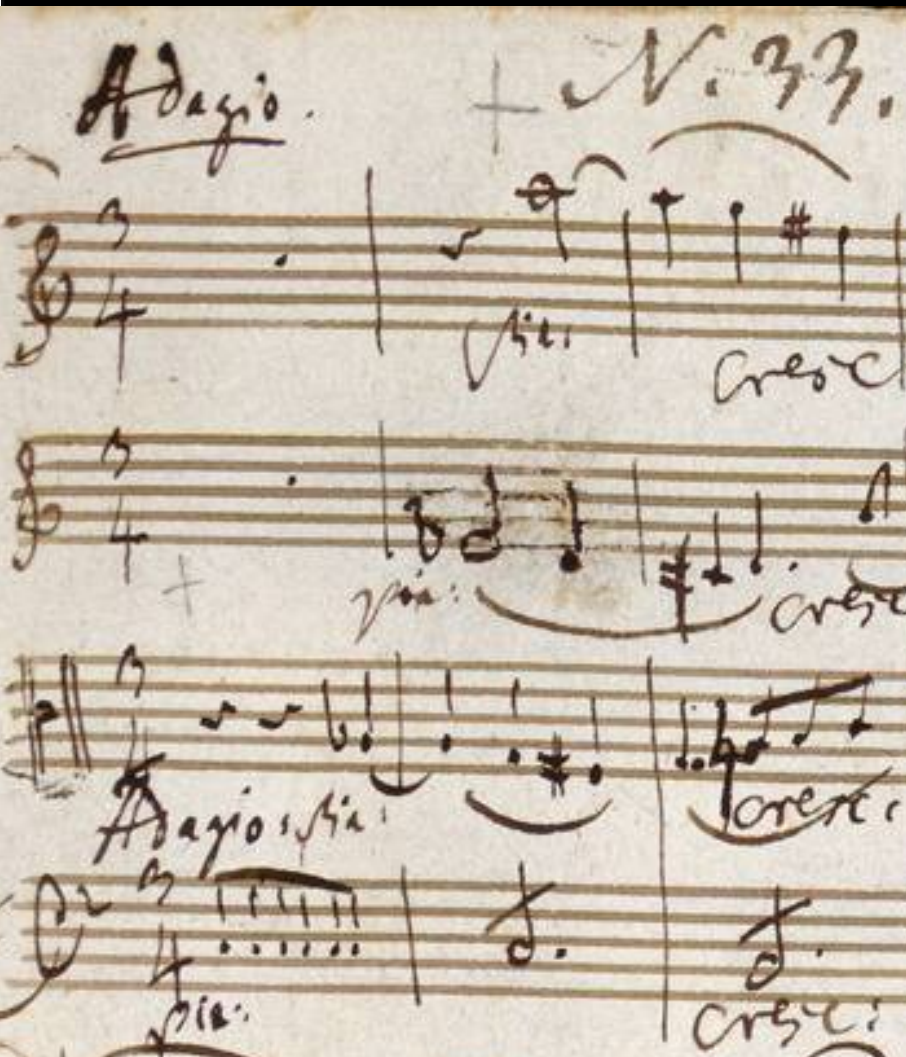 Adagio. N. 33.
3 4
pia:
cresc
3 4
pia: cresc
3 4
cresc:
Adagio: pia:
3 4
pia: cresc: